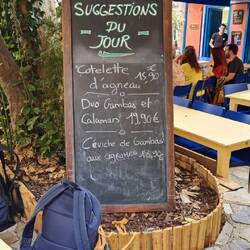 SUGGESTIONS
DU
JOUR
Cotelette
d'agneau 15,90
Duo Gambas et
Calamars 19,90€
Céviche de Gambas
aux agrumes 18,90€